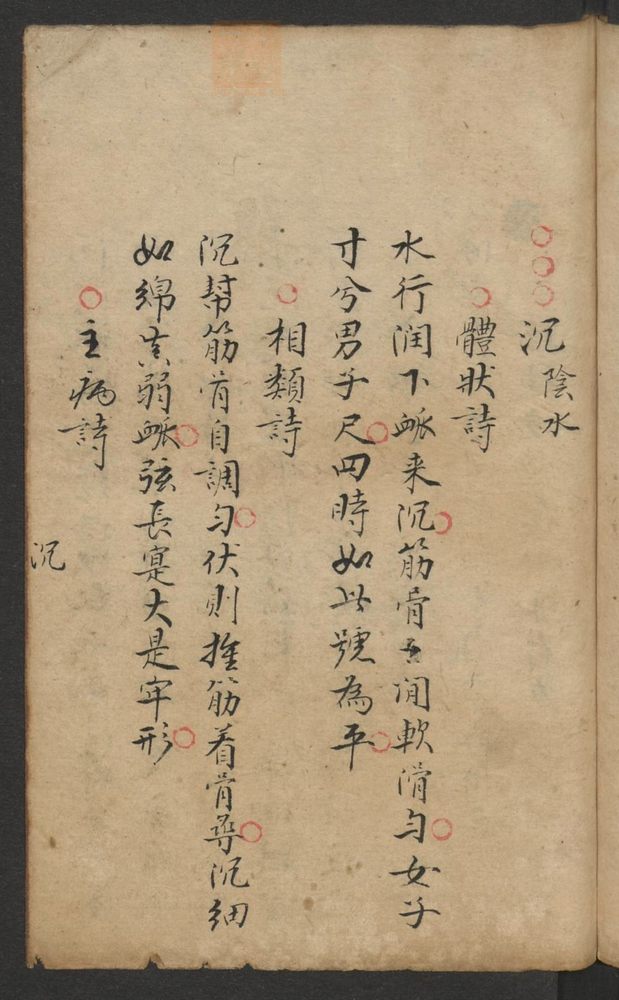 沉陰水
體狀詩
水行潤下脈来沉筋骨之间軟滑匀女子
寸兮男子尺四時如此號為平
相類詩
沉幇筋骨自調匀伏則推筋着骨尋沉細
如綿真弱脈弦長寔大是牢形
主病詩
沉